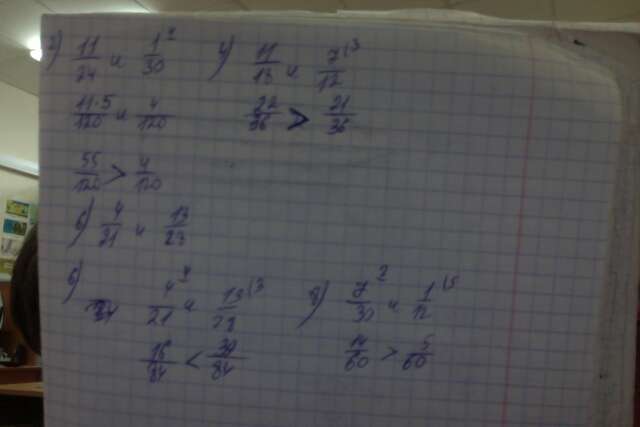 2) 11/24 и 1/30 4 4) 11/18 и 7/12 \3
11·5/120 и 4/120 22/36 > 21/36
55/120 > 4/120
6) 4/21 и 13/23
6) 4/21 4 и 13/28 \3 8) 7/30 2 и 1/12 \5
16/84 < 39/84 14/60 > 5/60